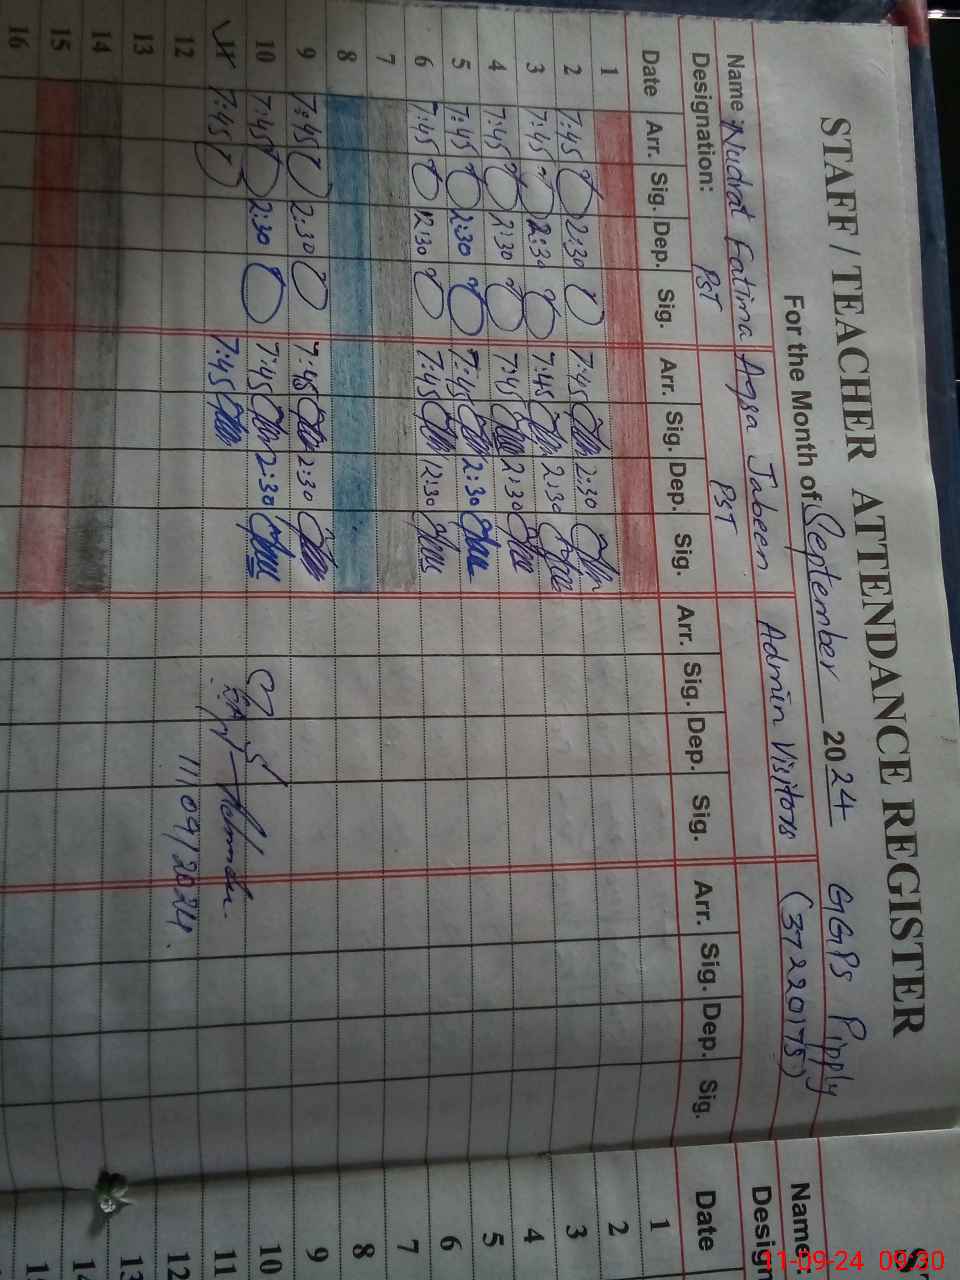 STAFF / TEACHER ATTENDANCE REGISTER
For the Month of September 2024 GGPS Pipply
Name: Nudrat Fatima Aqsa Jabeen Admin Visitors (37220175)
Designation: PST PST
Date Arr. Sig. Dep. Sig. Arr. Sig. Dep. Sig. Arr. Sig. Dep. Sig. Arr. Sig. Dep. Sig.
1
2 7:45 2:30 7:45 2:30
3 7:45 2:30 7:45 2:30
4 7:45 2:30 7:45 2:30
5 7:45 2:30 7:45 2:30
6 7:45 12:30 7:45 12:30
7
8
9 7:45 2:30 7:45 2:30
10 7:45 2:30 7:45 2:30
11 7:45 7:45
11/09/2024.
12
13
14
15
16
Name:
Desig
Date
1
2
3
4
5
6
7
8
9
10
11
12
13
11-09-24 09:30